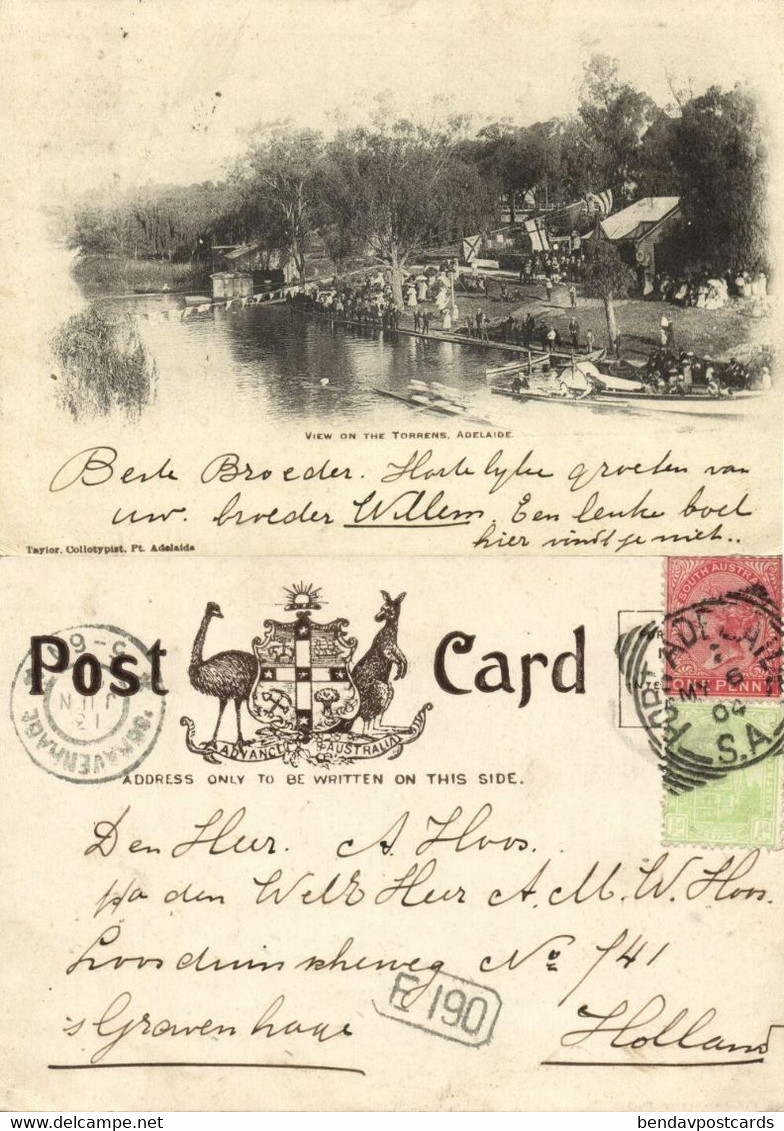 VIEW ON THE TORRENS, ADELAIDE.
Beste Broeder. Hartelijke groeten van
uw. broeder Willem. Een leuke boel
hier vindt je niet..
Taylor, Collotypist, Pt. Adelaide
Post Card
ADVANCE AUSTRALIA
ADDRESS ONLY TO BE WRITTEN ON THIS SIDE.
SOUTH AUSTRALIA
ONE PENNY
PORT ADELAIDE
MY 6
04
S.A.
'SGRAVENHAGE
13
JUN
Den Heer. A. Hoos.
p/a den WelE Heer A. M. W. Hoos.
Loosduinscheweg No 741
's Gravenhage Holland
E 190
delcampe.net
bendavpostcards